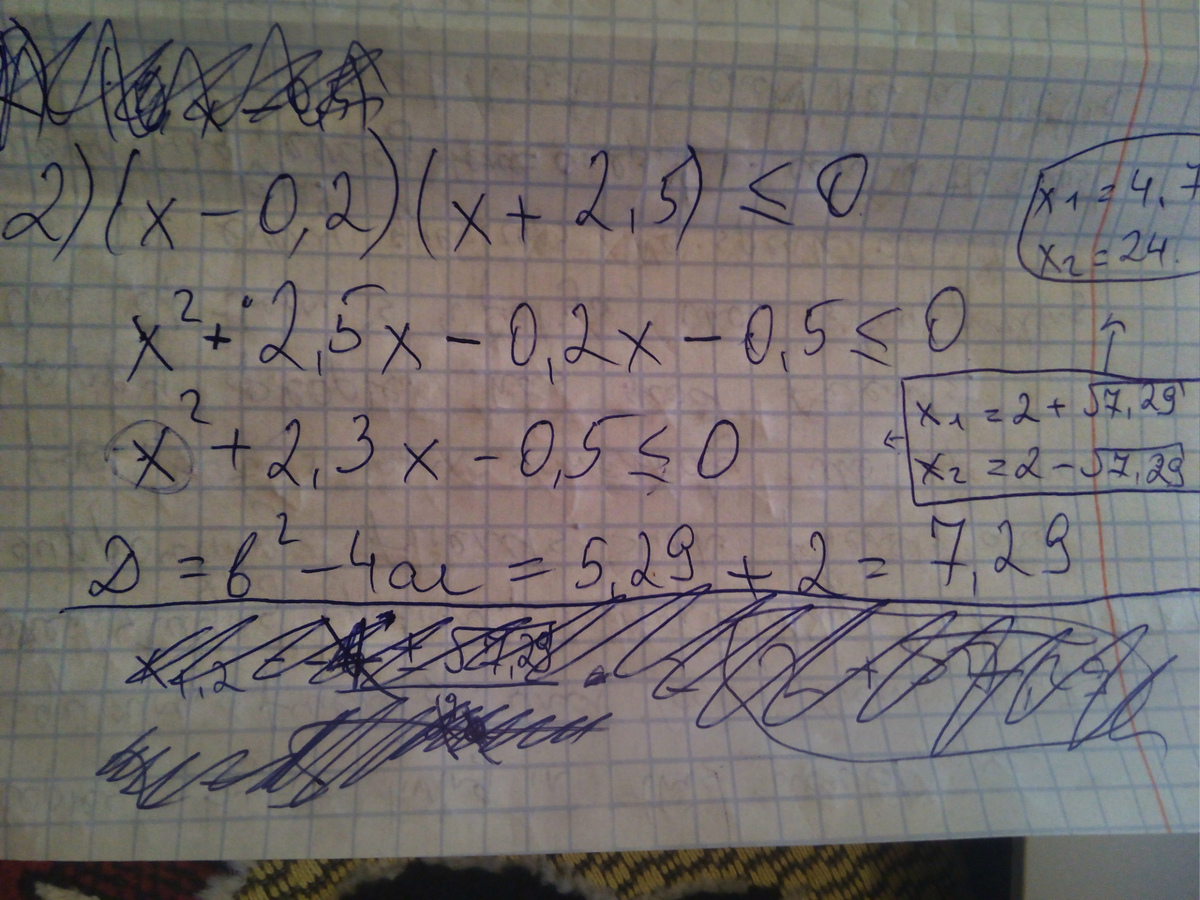 2) (x - 0,2)(x + 2,5) ≤ 0
x² + 2,5x - 0,2x - 0,5 ≤ 0
x² + 2,3x - 0,5 ≤ 0
D = b² - 4ac = 5,29 + 2 = 7,29
x₁ = 4,7
x₂ = 24.
x₁ = 2 + √7,29
x₂ = 2 - √7,29